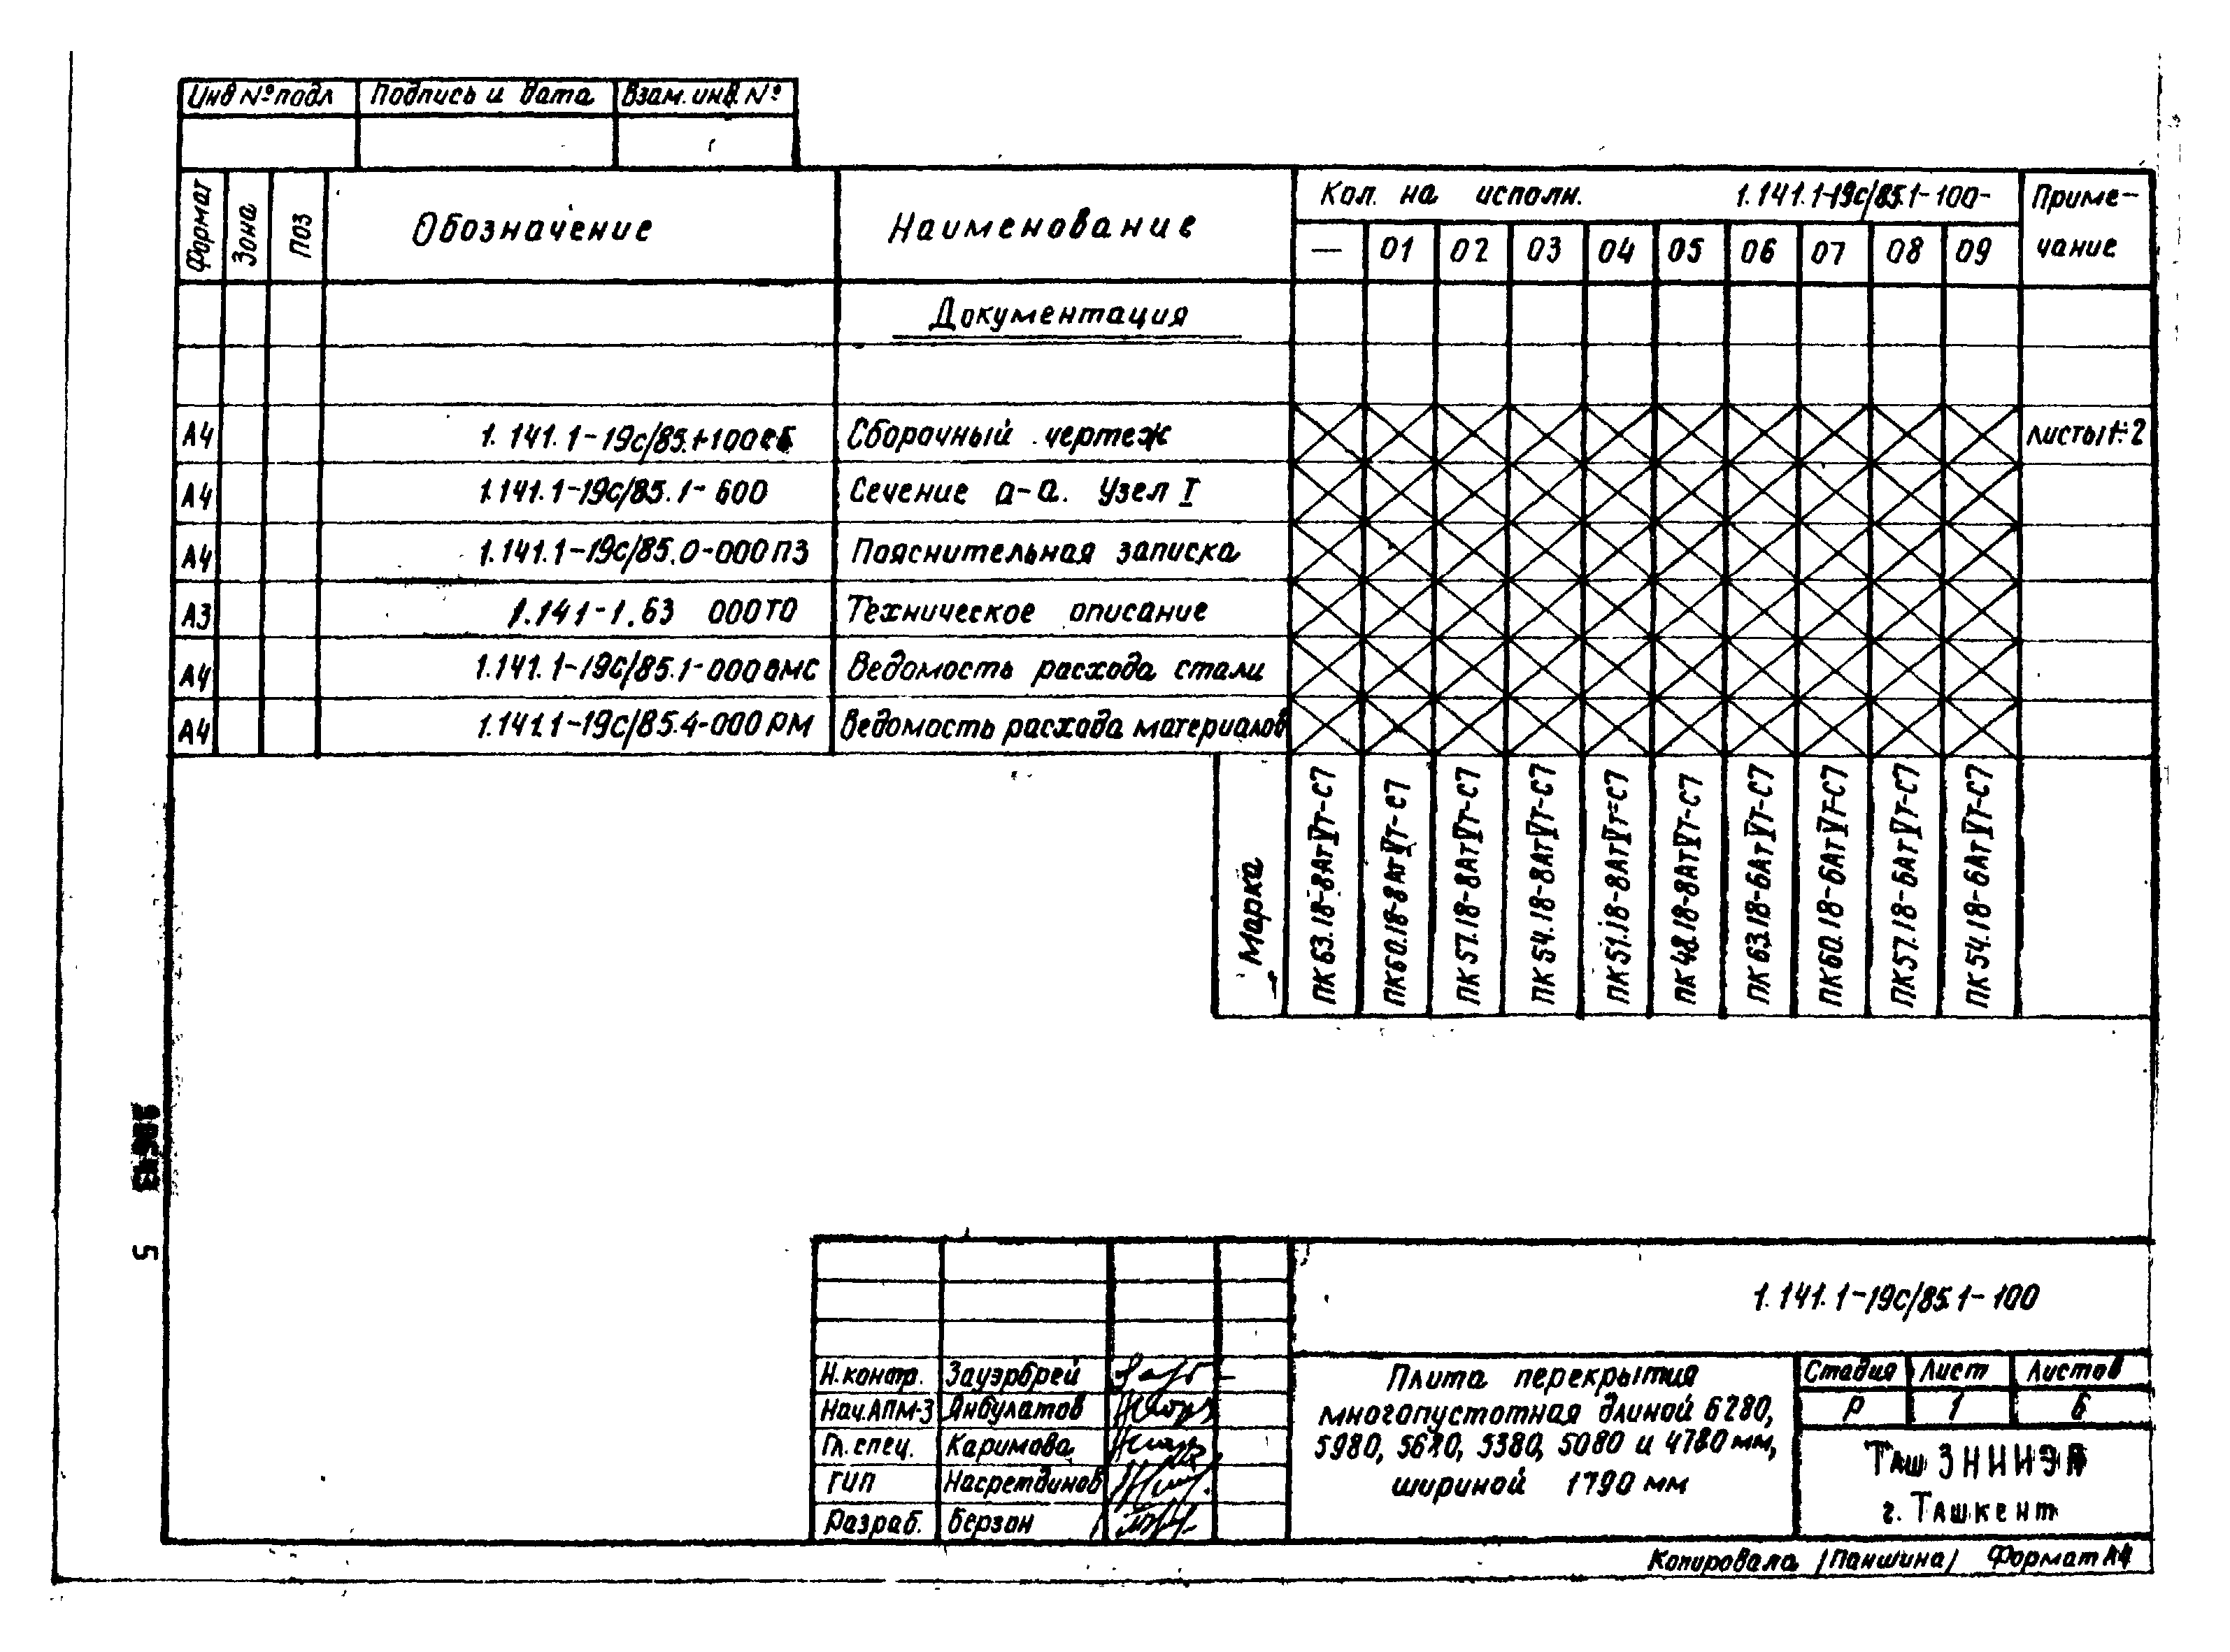 Инв № подл Подпись и дата Взам. инв. №
Формат Зона Поз Обозначение Наименование Кол. на исполн. 1.141.1-19с/85.1-100- Приме-
чание
— 01 02 03 04 05 06 07 08 09
Документация
А4 1.141.1-19с/85.1-100сб Сборочный чертеж листы 1÷2
А4 1.141.1-19с/85.1-600 Сечение а-а. Узел I
А4 1.141.1-19с/85.0-000ПЗ Пояснительная записка
А3 1.141-1.63 000ТО Техническое описание
А4 1.141.1-19с/85.1-000ВМС Ведомость расхода стали
А4 1.141.1-19с/85.4-000РМ Ведомость расхода материалов
Марка
ПК63.18-8АтVт-С7
ПК60.18-8АтVт-С7
ПК57.18-8АтVт-С7
ПК54.18-8АтVт-С7
ПК51.18-8АтVт-С7
ПК48.18-8АтVт-С7
ПК63.18-6АтVт-С7
ПК60.18-6АтVт-С7
ПК57.18-6АтVт-С7
ПК54.18-6АтVт-С7
5
1.141.1-19с/85.1-100
Н.контр. Зауэрбрей
Нач.АПМ-3 Янбулатов
Гл.спец. Каримова
ГИП Насретдинов
Разраб. Берзон
Плита перекрытия
многопустотная длиной 6280,
5980, 5680, 5380, 5080 и 4780 мм,
шириной 1790 мм
Стадия Лист Листов
Р 1 6
ТашЗНИИЭП
г. Ташкент
Копировала /Паншина/ Формат А4